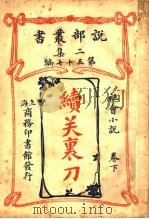 說部叢書
二集
第五十七編
社會小說
卷下
續笑裏刀
上海
商務印書館發行